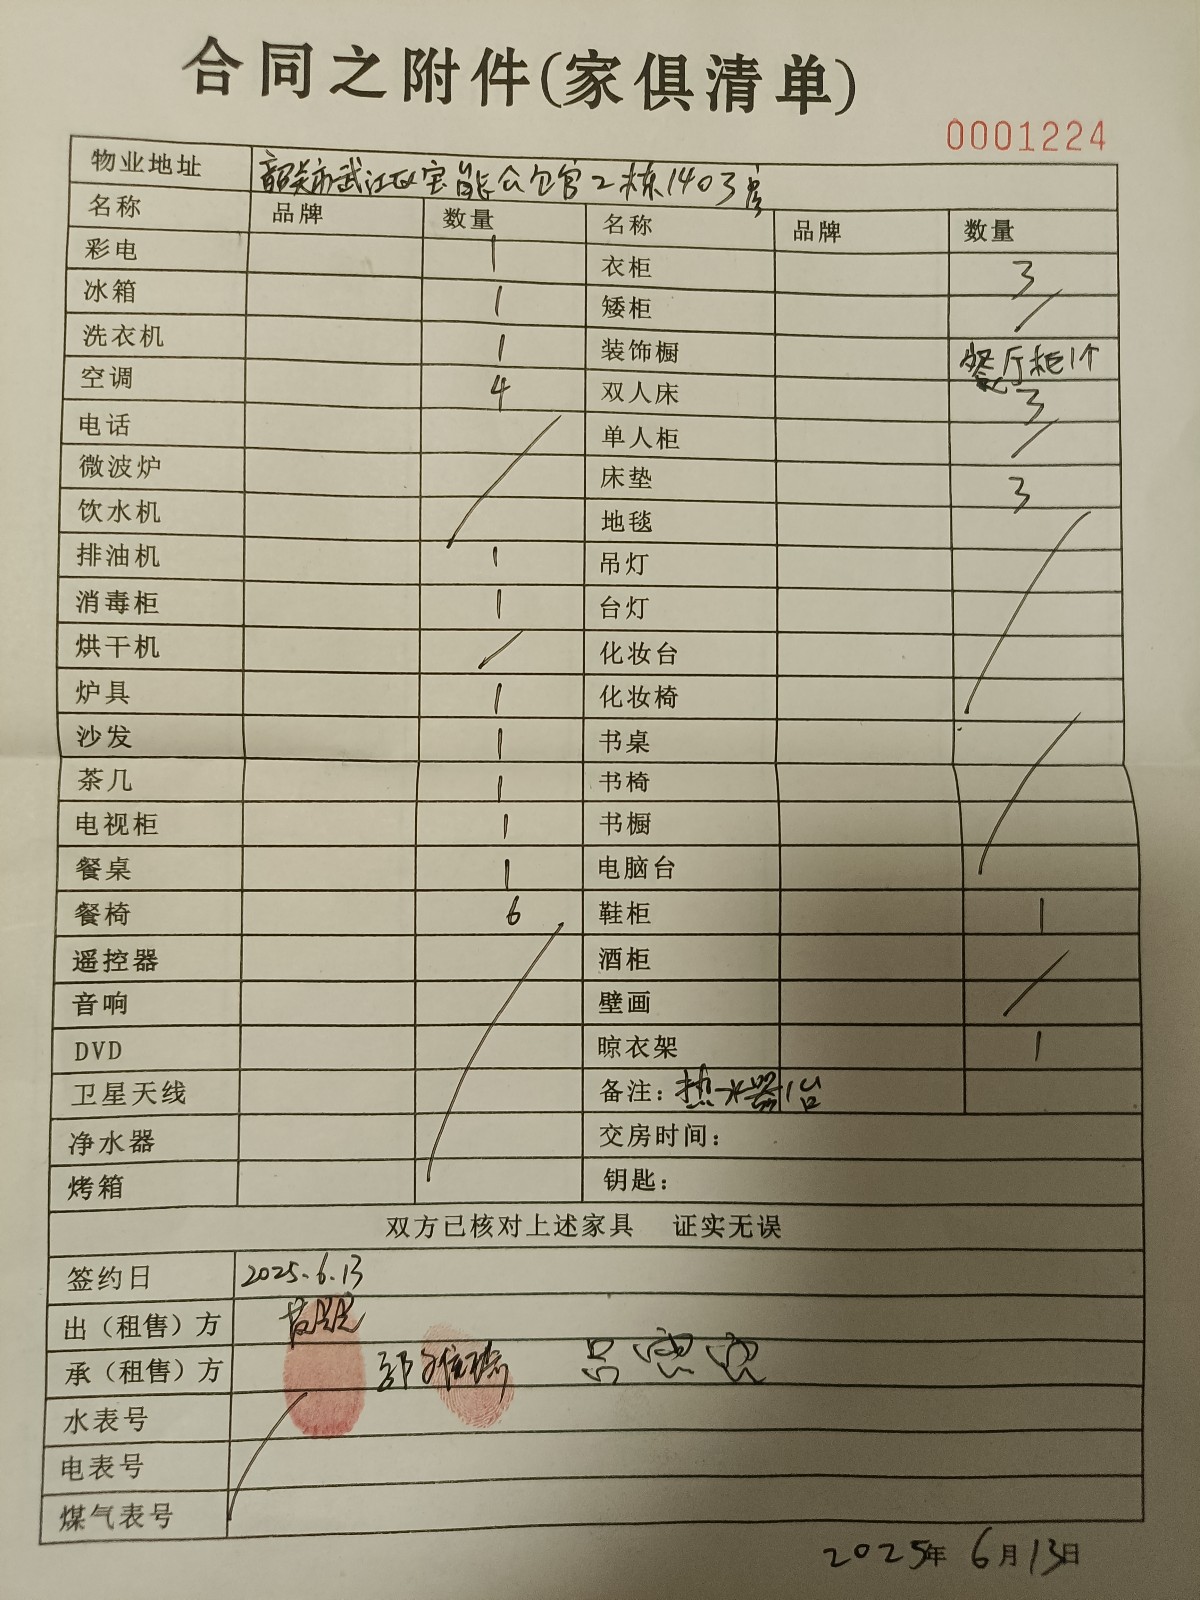 合同之附件(家俱清单)
0001224
物业地址 韶关市武江区宝能公馆2栋1403房
名称 品牌 数量 名称 品牌 数量
彩电 1 衣柜 3
冰箱 1 矮柜 /
洗衣机 1 装饰橱 餐厅柜1个
空调 4 双人床 3
电话 单人柜 /
微波炉 床垫 3
饮水机 地毯
排油机 1 吊灯
消毒柜 1 台灯
烘干机 / 化妆台
炉具 1 化妆椅
沙发 1 书桌
茶几 1 书椅
电视柜 1 书橱
餐桌 1 电脑台
餐椅 6 鞋柜 1
遥控器 酒柜
音响 壁画
DVD 晾衣架 1
卫星天线 备注：热水器1台
净水器 交房时间：
烤箱 钥匙：
双方已核对上述家具 证实无误
签约日 2025.6.13
出（租售）方
承（租售）方
水表号
电表号
煤气表号
2025年 6月13日